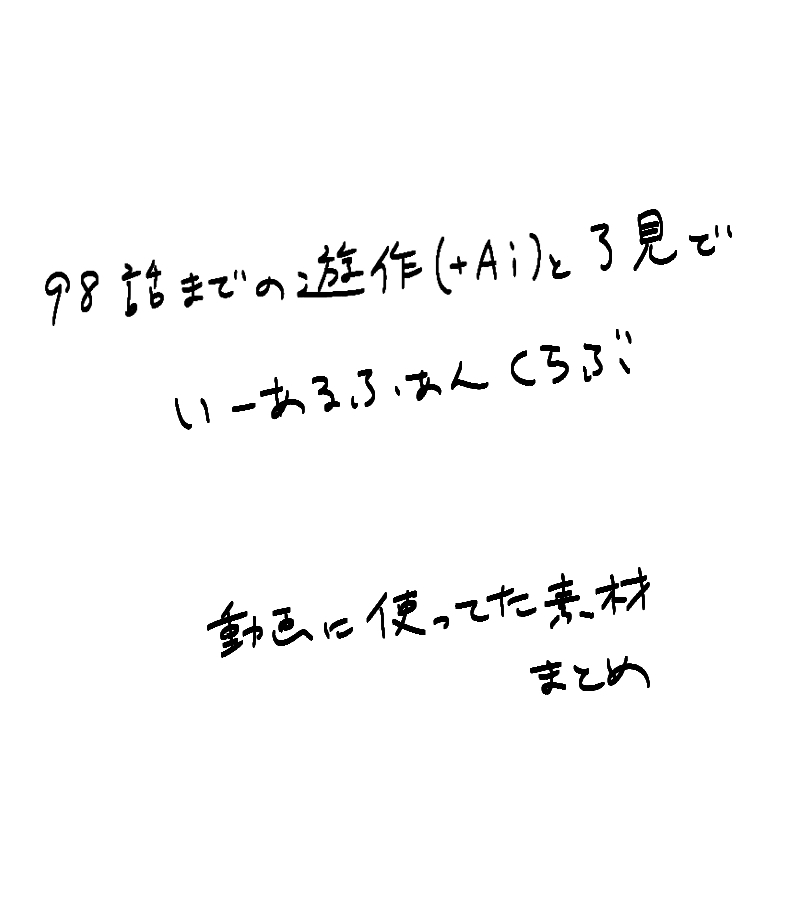 98話までの遊作(+Ai)と了見で
いーあるふぁんくらぶ
動画に使ってた素材
まとめ